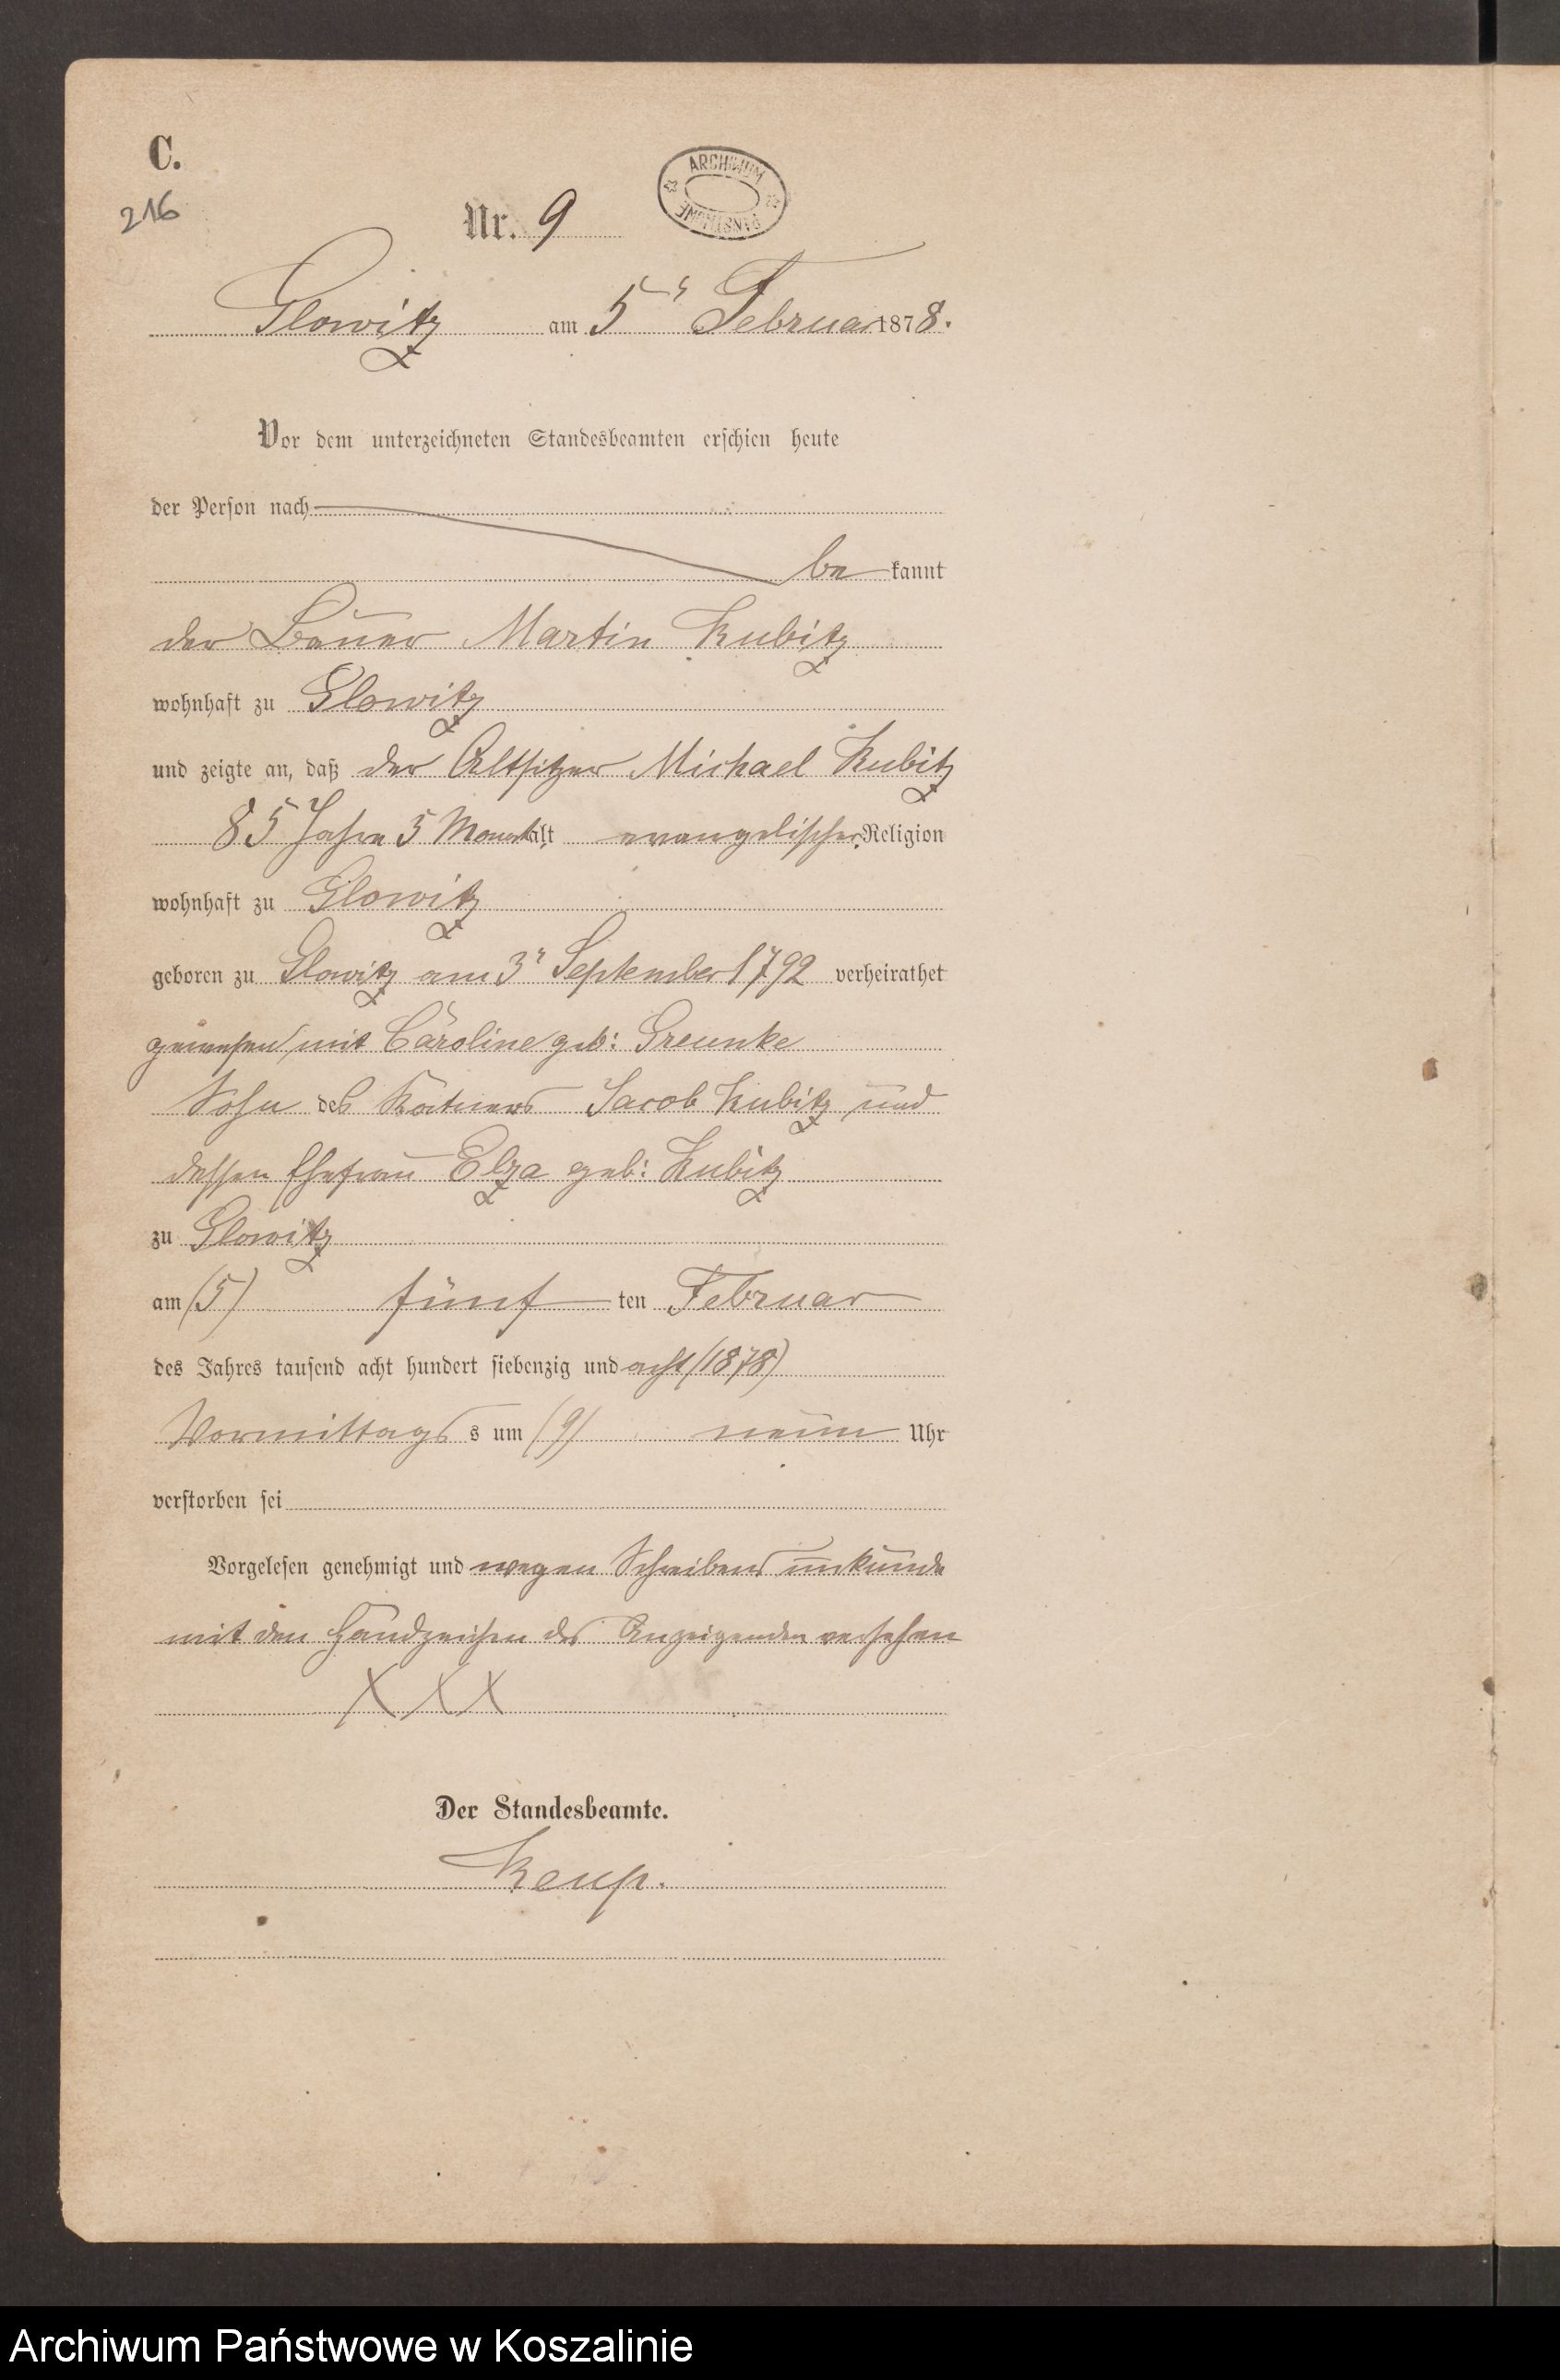 C.
216
Nr. 9
ARCHIWUM PAŃSTWOWE
Glowitz am 5' Februar 1878.
Vor dem unterzeichneten Standesbeamten erschien heute
der Person nach
be kannt
der Bauer Martin Kubitz
wohnhaft zu Glowitz
und zeigte an, daß der Altsitzer Michael Kubitz
85 Jahre 5 Monat alt, evangelischer Religion
wohnhaft zu Glowitz
geboren zu Glowitz am 3' September 1792 verheirathet
gewesen mit Caroline geb: Greunke
Sohn des Kätners Jacob Kubitz und
dessen Ehefrau Elza geb: Kubitz
zu Glowitz
am (5) fünf ten Februar
des Jahres tausend acht hundert siebenzig und acht (1878)
Vormittags s um (9) neun Uhr
verstorben sei
Vorgelesen genehmigt und wegen Schreibens unkunde
mit den Handzeichen des Anzeigenden versehen
X X X
Der Standesbeamte.
Keup.
Archiwum Państwowe w Koszalinie